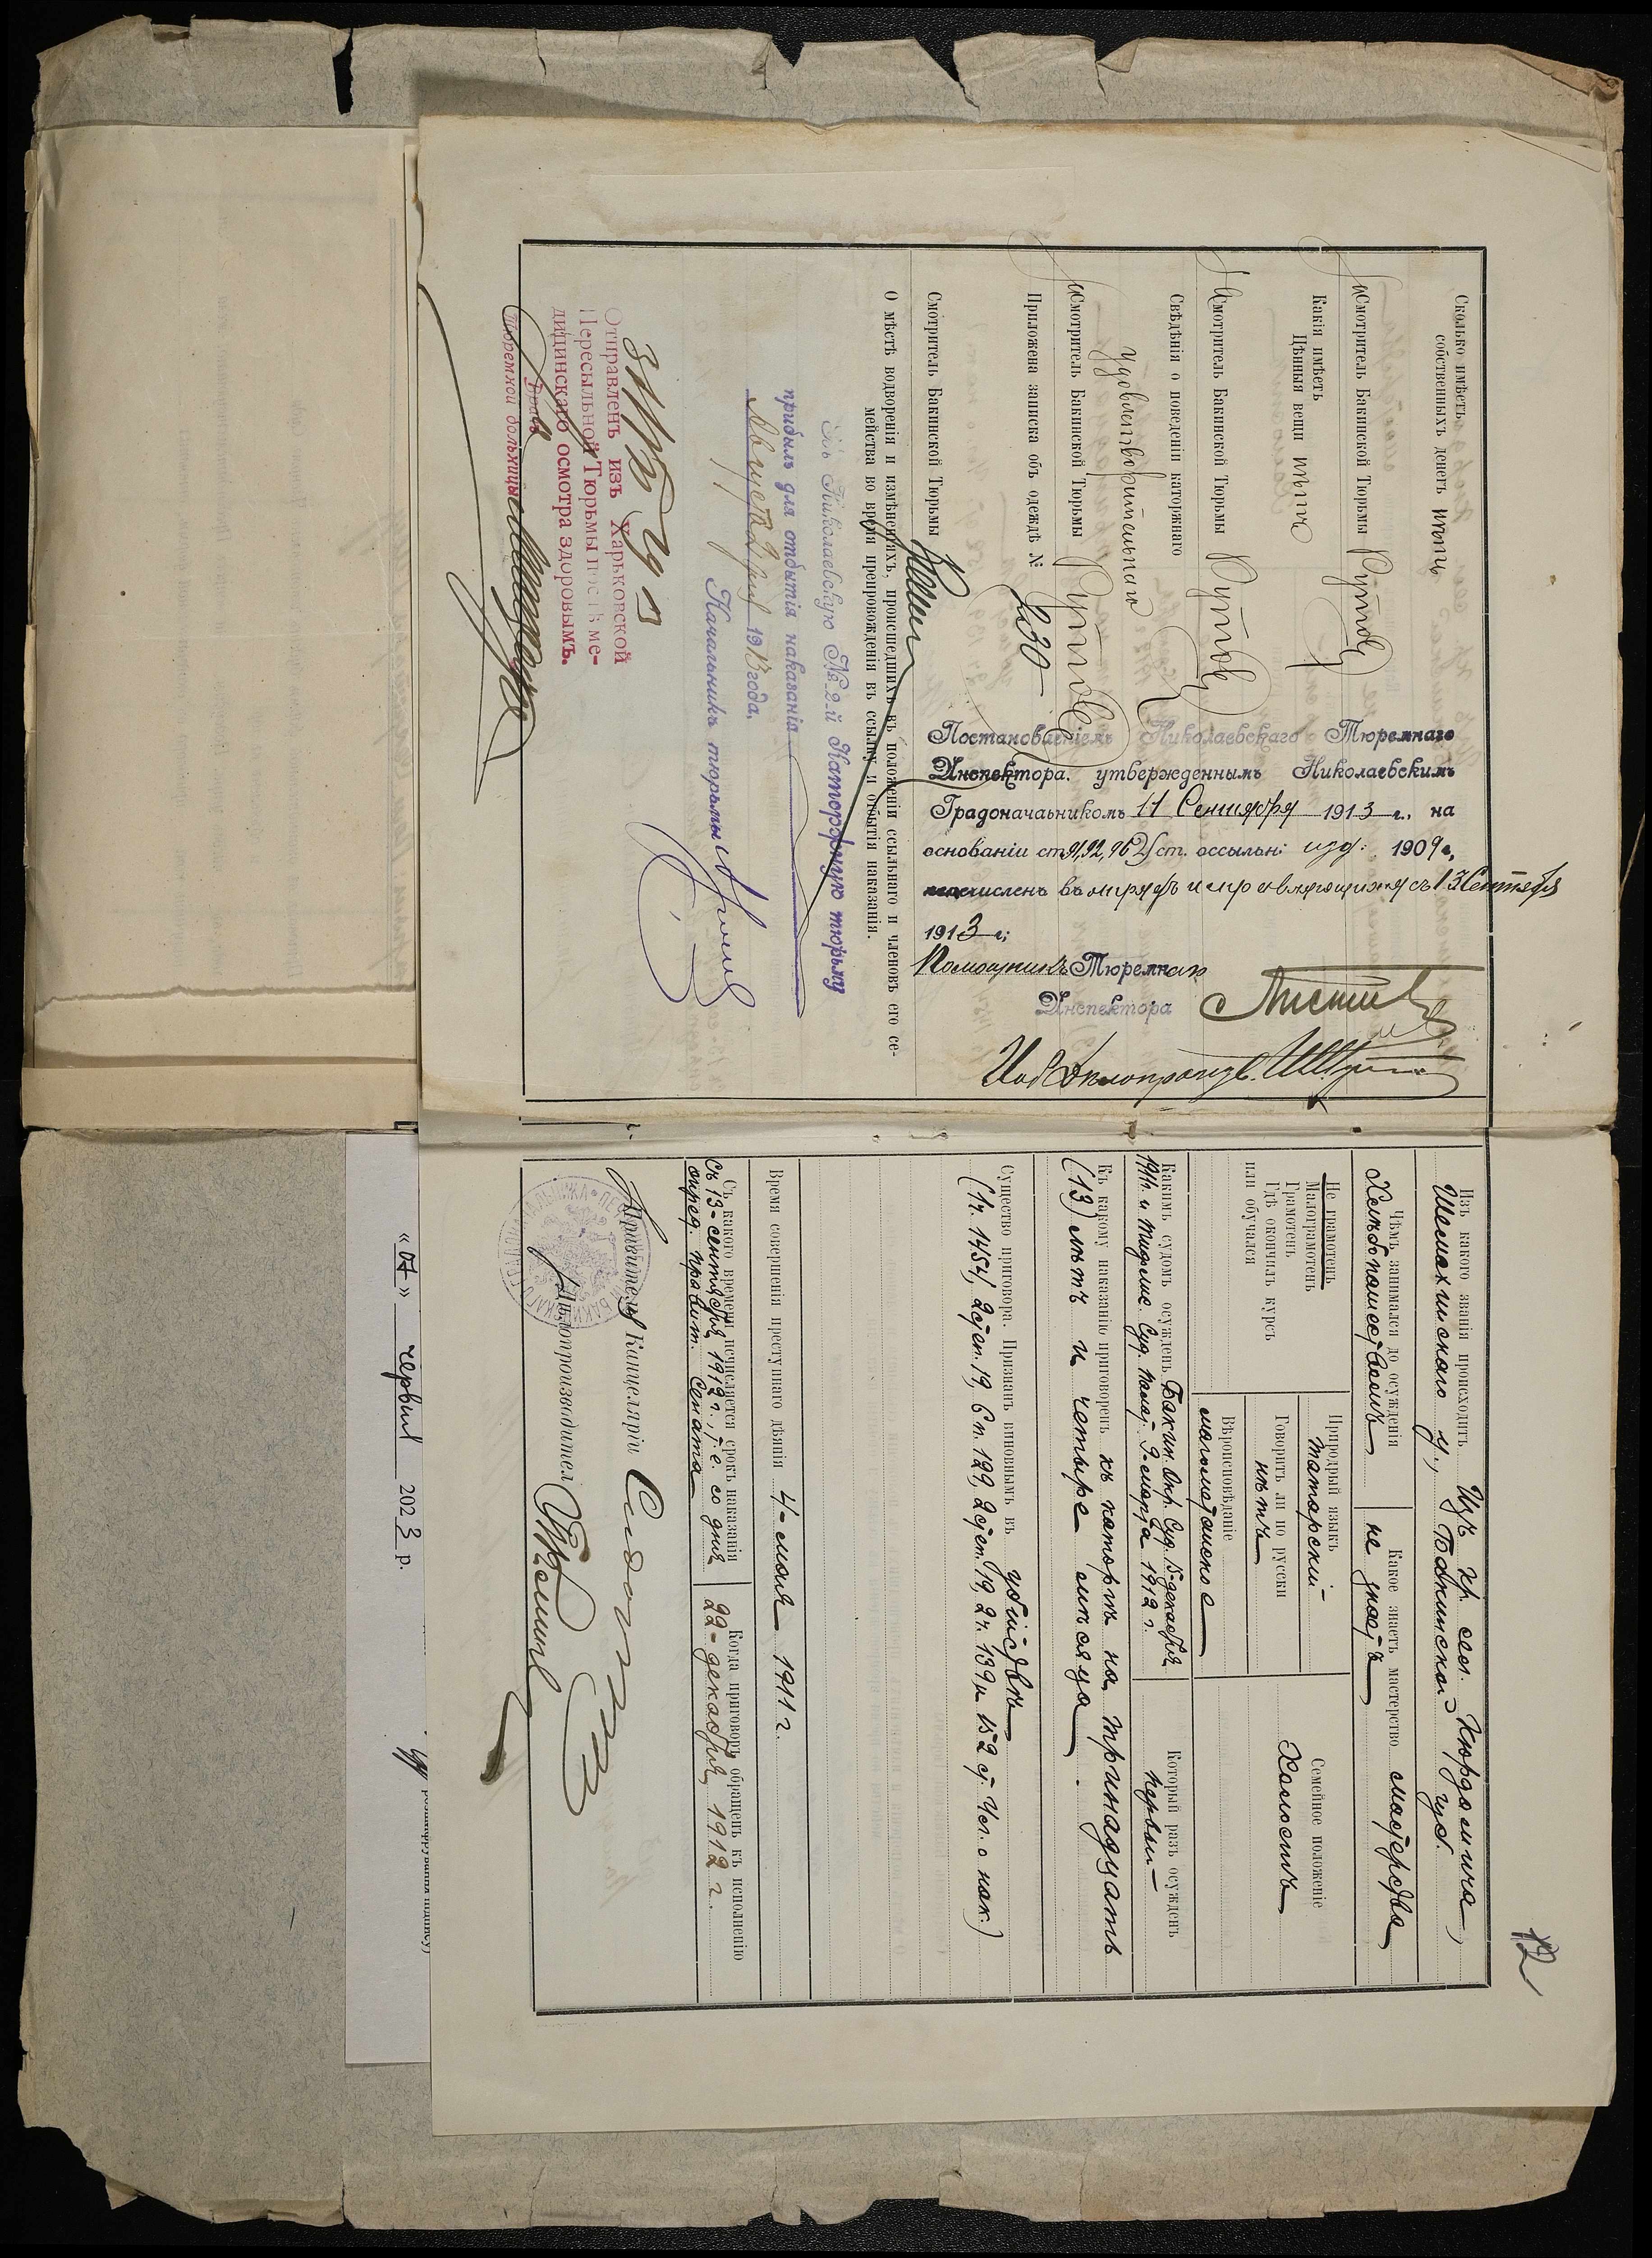 Сколько имѣетъ
собственныхъ денегъ нѣтъ
Смотритель Бакинской Тюрьмы
Какія имѣетъ
Цѣнныя вещи нѣтъ
Смотритель Бакинской Тюрьмы
Свѣдѣнія о поведеніи каторжнаго
удовлетворительнаго
Смотритель Бакинской Тюрьмы
Приложена записка объ одеждѣ № 230
Смотритель Бакинской Тюрьмы
О мѣстѣ водворенія и измѣненіяхъ, происшедшихъ въ положеніи ссыльнаго и членовъ его се-
мейства во время препровожденія въ ссылку и отбытія наказанія.
Николаевскую № 2-й Каторжную тюрьму
прибылъ для отбытія наказанія
Августа 1913 года.
Начальникъ тюрьмы
Отправленъ изъ Харьковской
Пересыльной Тюрьмы послѣ ме-
дицинскаго осмотра здоровымъ.
Врачъ
тюремной больницы
Постановленіемъ Николаевскаго Тюремнаго
Инспектора, утвержденнымъ Николаевскимъ
Градоначаьникомъ 11 Сентября 1913 г., на
основаніи ст. 91, 92, 96 Уст. оссыльн: изд: 1909 г,
численъ въ отрядъ исправляющихся съ 13 Сентября
1913 г;
Помощникъ Тюремнаго
Инспектора
12
Изъ какого званія происходитъ Изъ кр. сел. Кюрдамича,
Шемахинскаго у., Бакинской губ.
Чѣмъ занимался до осужденія
Хлѣбопашествомъ
Какое знаетъ мастерство мастерства
не знаетъ
Не грамотенъ
Малограмотенъ
Грамотенъ
Гдѣ окончилъ курсъ
или обучался
Природный языкъ
татарскій
Говоритъ ли по русски
нѣтъ
Вѣроисповѣданіе
магометанское
Семейное положеніе
Холостъ
Какимъ судомъ осужденъ Бакин. Окр. Суд. 15-декабря
1911 г. и Тифлис. Суд. Палат. 9-марта 1912 г.
Который разъ осужденъ
первый
Къ какому наказанію приговоренъ къ каторгѣ на тринадцать
(13) лѣтъ и четыре мѣсяца.
Существо приговора. Признанъ виновнымъ въ убійствѣ
(1 ч. 1454, 2 ст. 19, 6 п. 129, 2 ст. 19, 2 ч. 139 и 152 ст. Улож. о нак.)
Время совершенія преступнаго дѣянія 4-мая 1911 г.
Съ какого времени исчисляется срокъ наказанія
съ 13-сентября 1912 г., т.е. со дня
опред. Правит. Сената
Когда приговоръ обращенъ къ исполненію
22-декабря 1912 г.
Правитель Канцеляріи
Дѣлопроизводитель
«07» червня 2023 р.